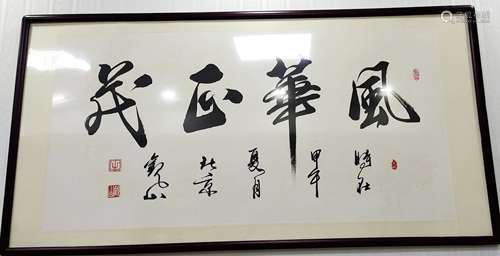 風華正茂
時在
甲午
夏月
北京